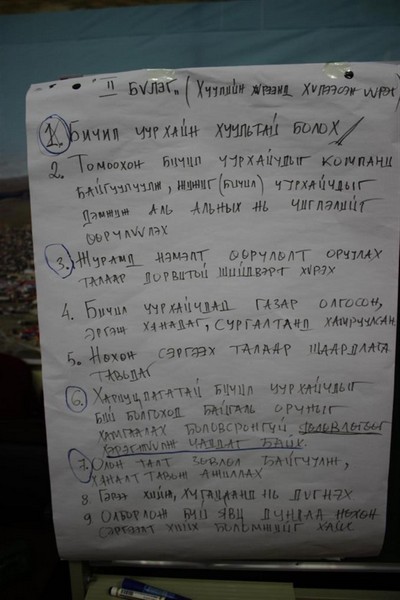 II БҮЛЭГ" (ХУУЛИЙН ХҮРЭЭНД ХҮЛЭЭСЭН ҮҮРЭГ)
1. БИЧИЛ УУРХАЙН ХУУЛЬТАЙ БОЛОХ
2. ТОМООХОН БИЧИЛ УУРХАЙЧДЫГ КОМПАНИ
БАЙГУУЛЧУУЛЖ, ЖИЖИГ (БИЧИЛ) УУРХАЙЧДЫГ
ДЭМЖИЖ АЛЬ АЛЬНЫХ НЬ ЧИГЛЭЛИЙГ
ӨӨРЧЛҮҮЛЭХ
3. ЖУРАМД НЭМЭЛТ ӨӨРЧЛӨЛТ ОРУУЛАХ
ТАЛААР ДОРВИТОЙ ШИЙДВЭРТ ХҮРЭХ
4. БИЧИЛ УУРХАЙЧДАД ГАЗАР ОЛГОСОН,
ЭРГЭЖ ХАНАДАГ, СУРГАЛТАНД ХАМРУУЛСАН
5. НӨХӨН СЭРГЭЭХ ТАЛААР ШААРДЛАГА
ТАВЬДАГ
6. ХАРИУЦЛАГАТАЙ БИЧИЛ УУРХАЙЧДЫГ
БИЙ БОЛГОХОД БАЙГАЛЬ ОРЧНЫГ
ХАМГААЛАХ БОЛОВСРОНГУЙ ТӨЛӨВЛӨГӨӨГ
ХЭРЭГЖҮҮЛЖ ЧАДДАГ БАЙХ.
7. ОЛОН ТАЛТ ЗӨВЛӨЛ БАЙГУУЛЖ,
ХЯНАЛТ ТАВЬЖ АЖИЛЛАХ
8. ГЭРЭЭ ХИЙЖ, ХУГАЦААНД НЬ ДҮГНЭХ
9. ОЛБОРЛОЖ БИЙ ЯВЦ ДУНДАА НӨХӨН
СЭРГЭЭЛТ ХИЙХ БОЛОМЖИЙГ ХАЙХ